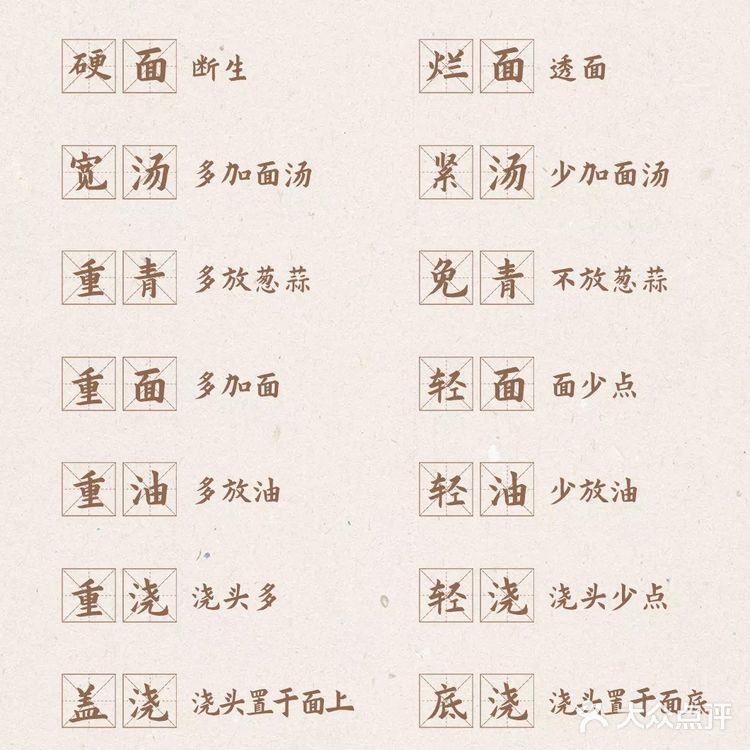 硬面 断生 烂面 透面
宽汤 多加面汤 紧汤 少加面汤
重青 多放葱蒜 免青 不放葱蒜
重面 多加面 轻面 面少点
重油 多放油 轻油 少放油
重浇 浇头多 轻浇 浇头少点
盖浇 浇头置于面上 底浇 浇头置于面底
大众点评